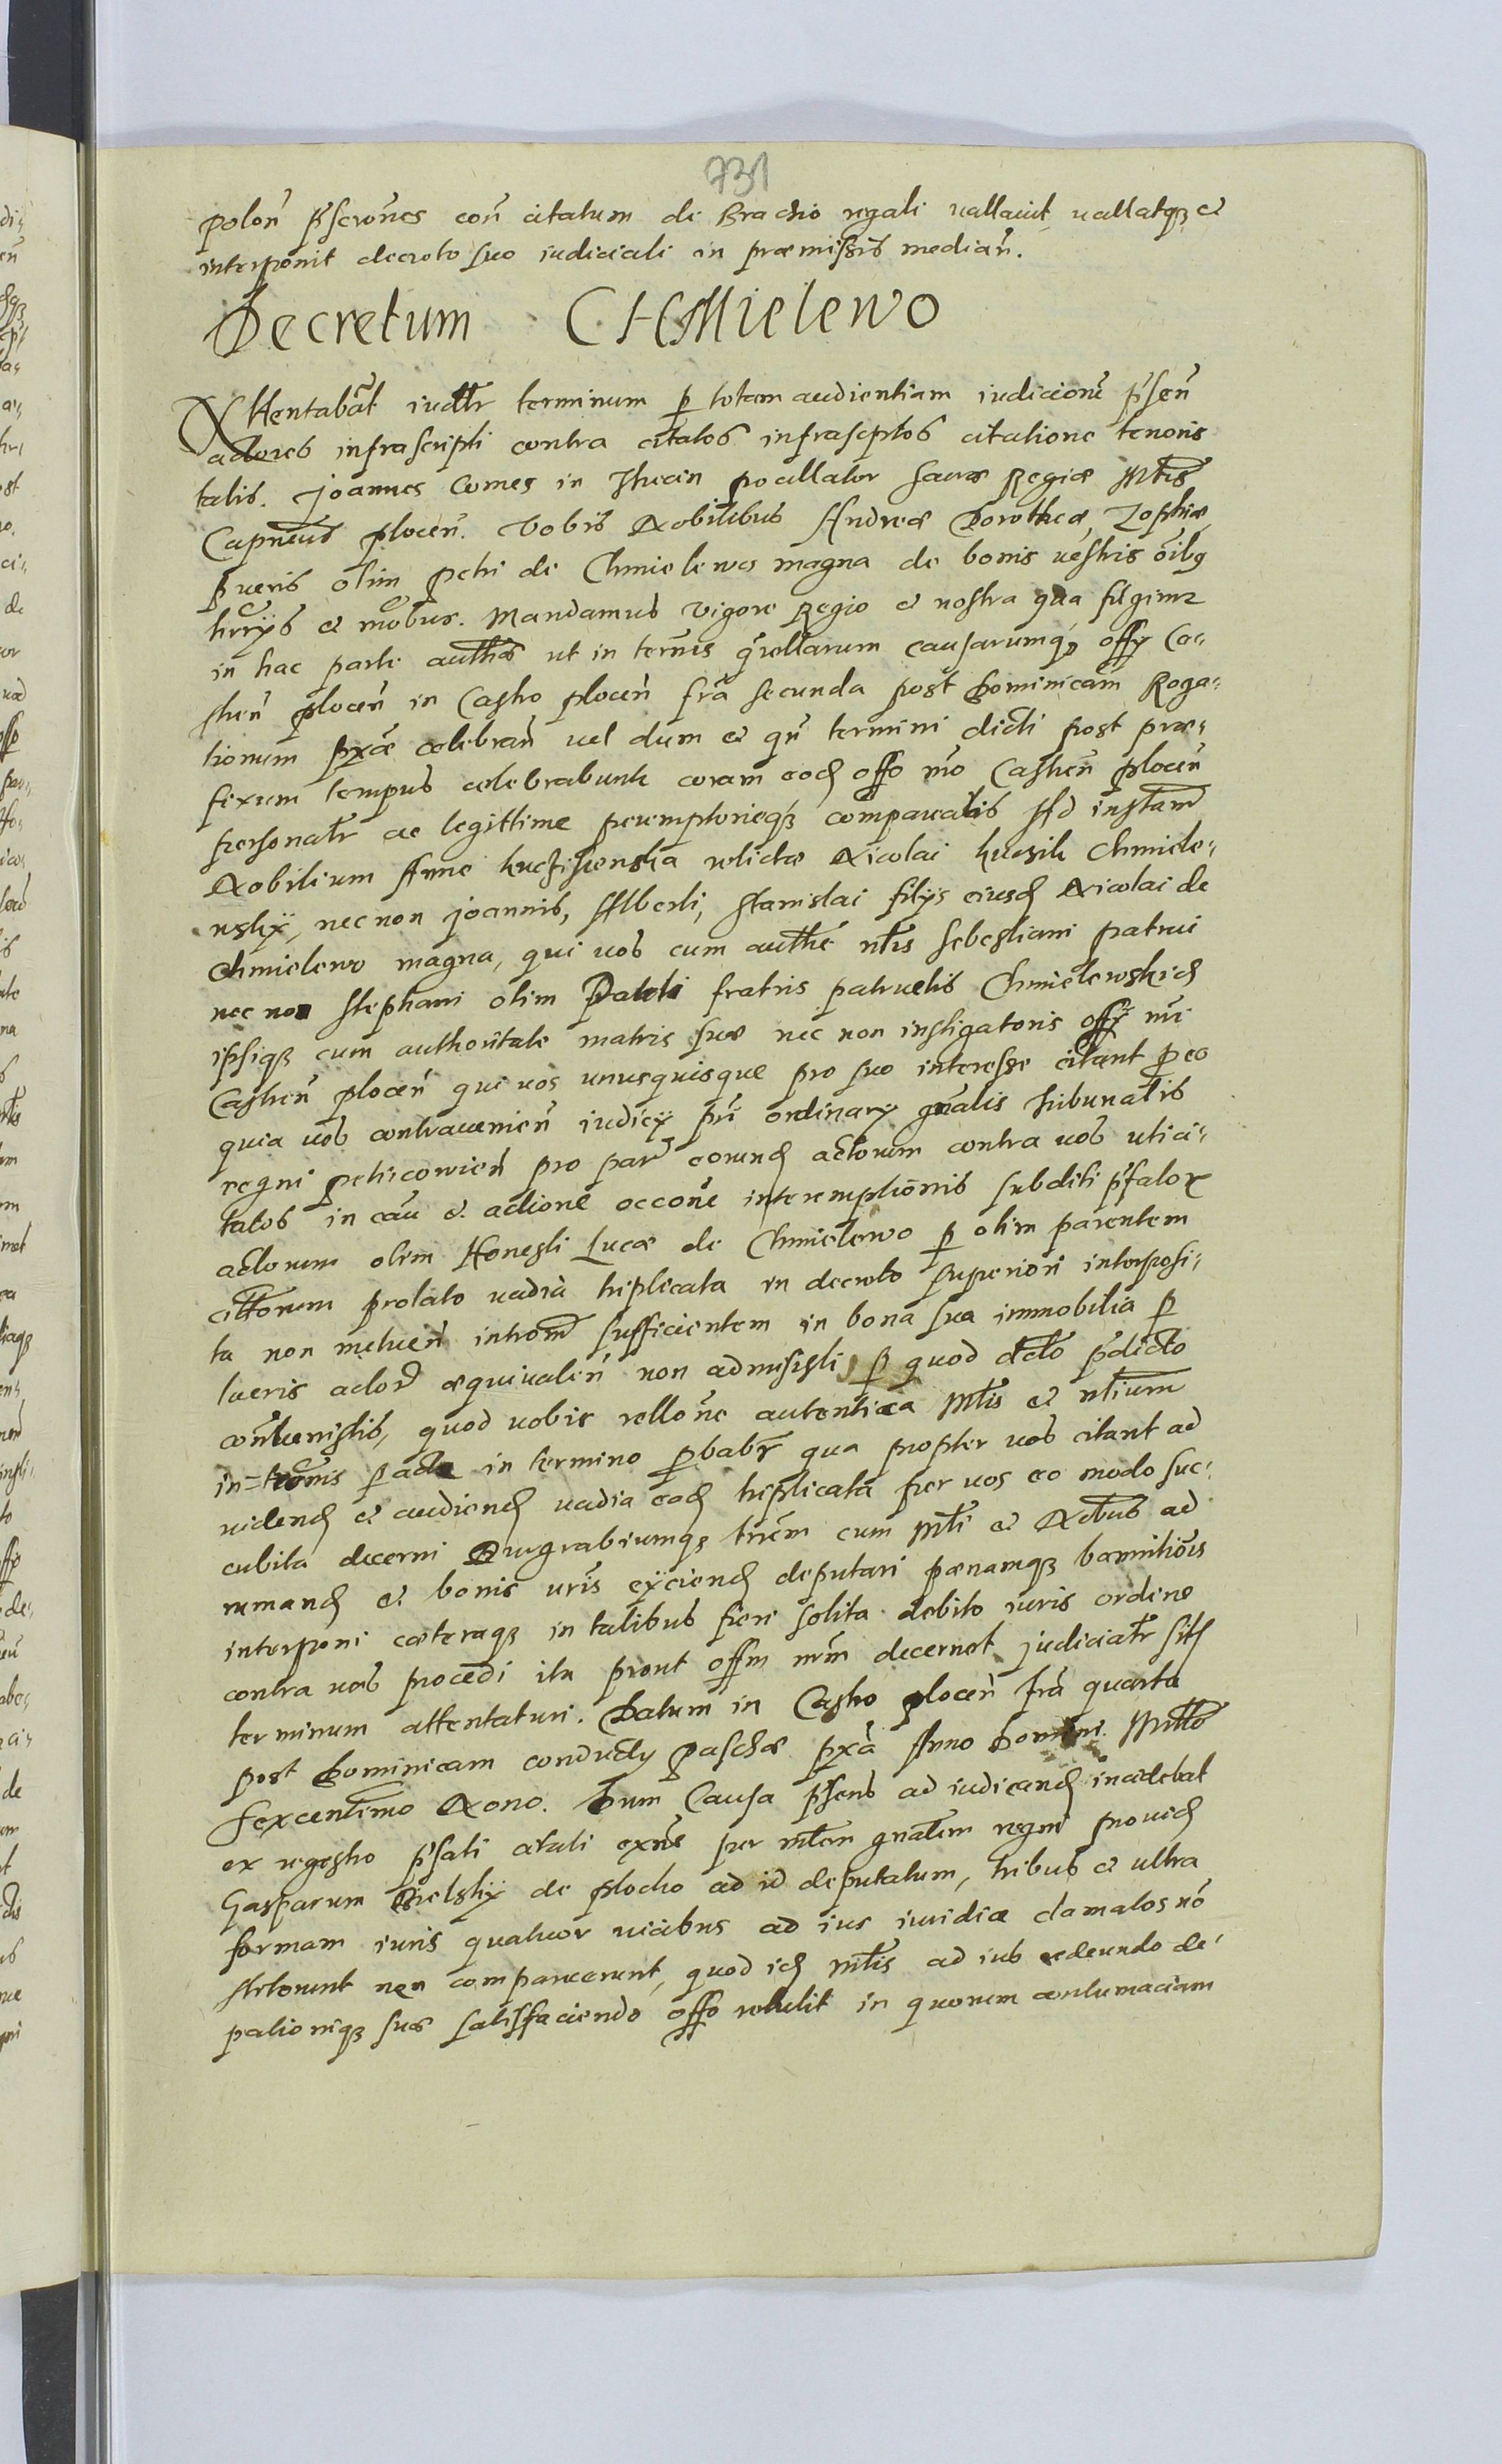 731
polon̄ p̄scrones con̄ citatum de Brachio regali vallavit, vallatq3 et
interponit decreto suo iudiciali in praemissis median̄.
Decretum CHMielewo
Attentabāt iudtr terminum p totam audientiam iudiciorū p̄sen̄
actores infrascripti contra citatos infrascptos citatione tenoris
talis. Joannes Comes in pocillator Sacrae Regiae Mttis
Capneus plocen̄. Vobis Nobilibus Andreae Dorotheae, Zophiae
pueris olim Petri de Chmielewo magna de bonis vestris oībq
hrrijs et mobus. Mandamus vigore Regio et nostra qua fugimr
in hac parte autthē ut in termīs q̄rellarum causarumq3 offy Ca-
stren̄ plocen̄ in Castro plocen̄ fr̄a secunda post Dominicam Roga-
tionum pxae celebran̄ vel dum et qn̄ termini dicti post prae-
fixum tempus celebrabuntr coram eod offo nr̄o Castren̄ plocen̄
personatr ac legittime peremptorieq3 compareatis Ad instam̄
Nobilium Anne relictae Nicolai Chmiele-
wskij, nec non Joannis, Alberti, Stanislai filijs eiusd Nicolai de
Chmielewo magna, qui vos cum autthē nttis Sebestiani patrui
nec non Stephani olim Pauli fratris patruelis Chmielewskich
ipsiq3 cum authoritate matris suae nec non instigatoris offy nr̄i
Castren̄ plocen̄ qui vos unusquisque pro suo interesse citant p eo
quia vos contravenien̄ iudicy pn̄i ordinary gnalis tribunalis
regni petricovien̄ pro par̄ eorund actorum contra vos uti ci-
tatos in cau̅ et actione occone interemptionis subditi p̄fatorx
actorum olim Honesti Lucae de Chmielewo p olim parentem
cittorum prolato vadia triplicata in decreto superiori interposi-
ta non metuen̄ introm̄ sufficientem in bona sua immobilia p
lueris actor̄ aequivalen̄ non admisisti p quod dcto p̄dicto
contuenistis, quod vobis rellone autentica Mttis et nttium
in-tromis p acta in termino pbabr̄ qua propter vos citant ad
videnđ et audiend vadia eođ triplicata per vos eo modo suc-
cubita decerni Arrgrabiumq3 cum Mtti et Nttbus ad
rumand et bonis vris eijciend deputari paenamq3 bannitiōis
interponi caeteraq3 in talibus fieri solita debito iuris ordine
contra vos procedi ita prout offm nrm decernet judiciatr sitis
terminum attentaturi. Datum in Castro plocen̄ fr̄a quarta
post Dominicam conductꝫ Paschae pxa Anno Domini Mtto
sexcentimo Nono. Dum Causa p̄sens ad iudicand incidebat
ex regestro p̄sati citati exn̄te per mttem gnalem regni providꝫ
Gasparum Bielskij de plocko ad id deputatum, tribus et ultra
formam iuris quatuor vicibus ad ius iuridice clamatos nō
steterunt nen comparuerunt, quod id Mttis ad ius redeundo de-
pationiq3 suae satisfaciendo offo retulit in quorum contumaciam